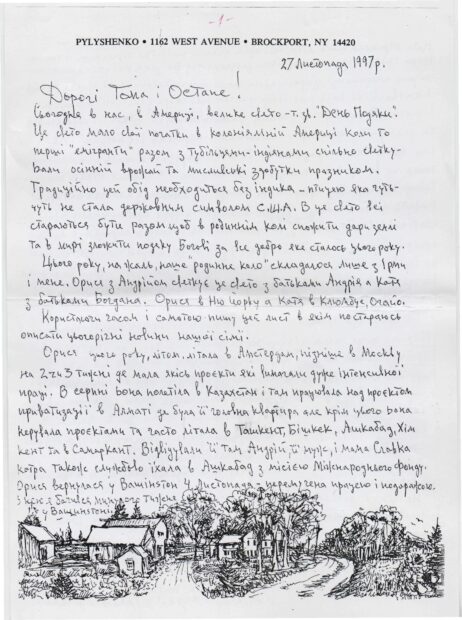 -1-
PYLYSHENKO • 1162 WEST AVENUE • BROCKPORT, NY 14420
27 Листопада 1997 р.
Дорогі Тома і Остапе!
Сьогодня в нас, в Америці, велике свято - т. зв. "День Подяки".
Це свято мало свої початки в колоніяльній Америці коли то
перші "емігранти" разом з тубільцями-індіянами спільно святку-
вали осінній врожай та мисливські здобутки празником.
Традиційно цей обід необходиться без індика - птицю яка чуть-
чуть не стала державним символом США. В це свято всі
стараються бути разом щоб в родиннім колі спожити дари землі
та в мирі зложити подяку Богові за все добре яке сталось цього року.
Цього року, на жаль, наше "родинне коло" складалося лише з Ірми
і мене. Орися з Андрієм святкує це свято з батьками Андрія а Катя
з батьками Богдана. Орися в Ню Йорку а Катя в Клівленді, Огайо.
Користаючи часом і самотою пишу цей лист в якім постараюсь
описати цьогорічні новини нашої сімї.
Орися цього року, літом, літала в Амстердам, пізніше в Москву
на 2 чи 3 тижні де мала якісь проєкти які вимагали дуже інтенсивної
праці. В серпні вона полетіла в Казахстан і там працювала над проєктом
приватизації в Алматі де була її головна квартира але крім цього вона
керувала проєктами та часто літала в Ташкент, Бішкек, Ашкабад, Хім
кент та в Самаркант. Відвідували її там Андрій, її муж, і мама Славка
котра також службово їхала в Ашкабад з місією Міжнароднього Фонду.
Орися вернулася у Вашінґтон 4 Листопада - перемучена працею і подорожою.
З нею я бачився минулого тижня
у Вашинґтоні.